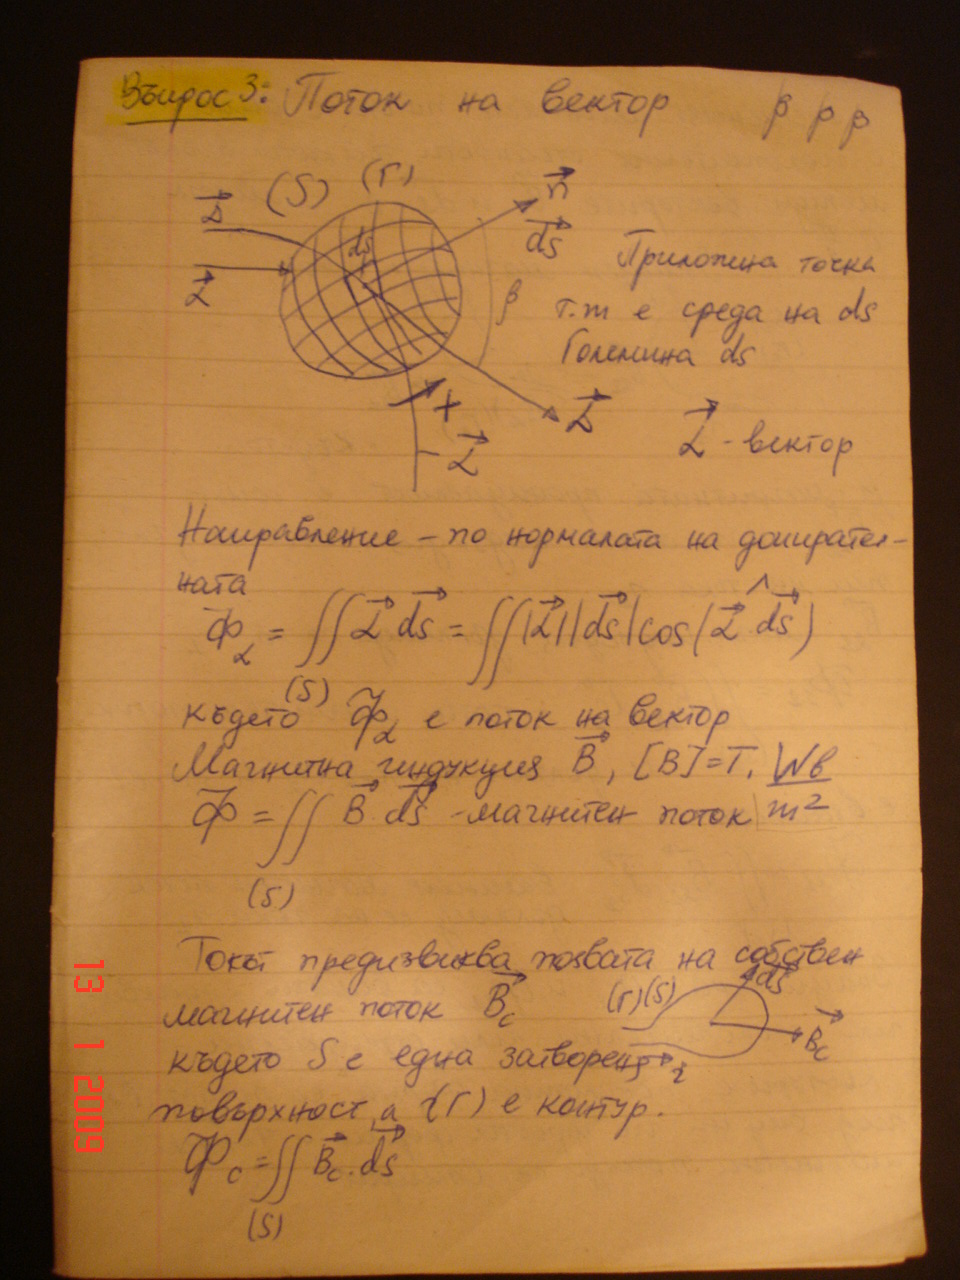 Въпрос 3: Поток на вектор β β β
(S) (Г)
n
L ds
ds
L
Приложна точка
β т.m е среда на ds
Големина ds
+ L
L - вектор
- L
Направление - по нормалата на допирател-
ната
Ф_L = ∬ L ds = ∬ |L| |ds| cos(L ^ ds)
(S)
където Ф_L е поток на вектор
Магнитна индукция B, [B]=T, Wb/m²
Ф = ∬ B ds - магнитен поток
(S)
Токът предизвиква появата на собствен
ds
магнитен поток B_c (Г)(S)
B_c
където S е една затворена i
повърхност, а (Г) е контур.
Ф_c = ∬ B_c.ds
(S)
13 1 2009